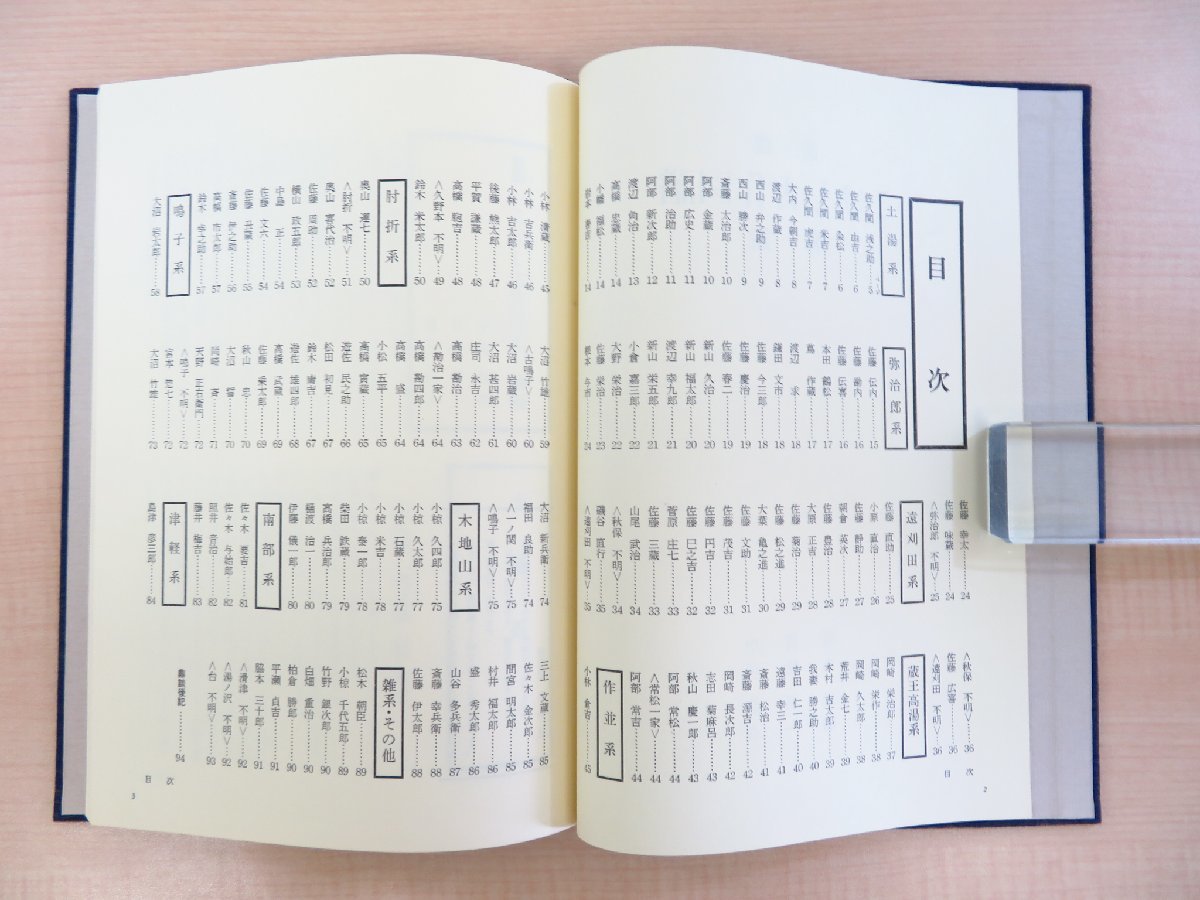 目次
土湯系
佐久間 浅之助……5
佐久間 由吉……6
佐久間 粂松……6
佐久間 米吉……7
佐久間 虎吉……7
大内 今朝吉……8
渡辺 作蔵……8
西山 弁之助……9
西山 勝次……9
斎藤 太治郎……10
阿部 金蔵……10
阿部 広史……11
阿部 治助……11
阿部 新次郎……12
渡辺 角治……13
高橋 忠蔵……14
小幡 福松……14
岩本 善吉……14
弥治郎系
佐藤 伝内……15
佐藤 勘内……16
佐藤 伝喜……16
本田 鶴松……17
蔦 作蔵……17
渡辺 求……18
鎌田 文市……18
佐藤 今三郎……18
佐藤 慶治……19
佐藤 春二……19
新山 久治……20
新山 福太郎……20
渡辺 幸九郎……21
新山 栄五郎……21
小倉 嘉三郎……22
大野 栄治……22
佐藤 栄治……23
24
佐藤 幸太……24
佐藤 味蔵……24
〈弥治郎 不明〉……25
遠刈田系
佐藤 直助……25
小原 直治……26
佐藤 静助……27
朝倉 英次……27
佐藤 豊治……28
大原 正吉……28
佐藤 菊治……29
佐藤 松之進……29
大葉 亀之進……30
佐藤 文助……31
佐藤 茂吉……31
佐藤 円吉……32
佐藤 巳之吉……32
菅原 庄七……33
佐藤 三蔵……33
山尾 武治……34
〈秋保 不明〉……34
磯谷 直行……35
〈遠刈田 不明〉……35
〈秋保 不明〉……36
佐藤 広喜……36
〈遠刈田 不明〉……36
蔵王高湯系
岡崎 栄治郎……37
岡崎 栄作……38
岡崎 久太郎……38
荒井 金七……39
木村 吉太郎……39
我妻 勝之助……40
吉田 仁一郎……40
遠藤 幸三……41
斎藤 松治……41
斎藤 源吉……42
岡崎 長次郎……42
志田 菊麻呂……43
秋山 慶一郎……43
阿部 常松……44
〈常松一家〉……44
阿部 常吉……44
作並系
小林 倉吉……45
目次
2
小林 清蔵……45
小林 吉兵衛……46
小林 吉太郎……46
後藤 熊太郎……47
平賀 謙蔵……48
高橋 胞吉……48
〈久野本 不明〉……49
鈴木 米太郎……50
肘折系
奥山 運七……50
〈肘折 不明〉……51
奥山 喜代治……52
佐藤 周助……52
横山 政五郎……53
中島 正……54
佐藤 文六……54
佐藤 丑蔵……55
斎藤 伊之助……56
高橋 市太郎……57
鈴木 幸之助……57
鳴子系
大沼 岩太郎……58
大沼 竹雄……59
〈古鳴子〉……60
大沼 岩蔵……60
大沼 甚四郎……61
庄司 永吉……62
高橋 勘治……63
〈勘治一家〉……64
高橋 勘四郎……64
高橋 盛……64
小松 五平……65
高橋 寅蔵……65
遊佐 民之助……66
松田 初見……67
鈴木 庸吉……67
遊佐 雄四郎……68
高橋 武蔵……69
佐藤 乗太郎……69
秋山 忠……70
大沼 誓……70
岡崎 斉……71
天野 正右衛門……72
〈鳴子 不明〉……72
宮本 惣七……72
大沼 竹雄……73
大沼 新兵衛……74
福田 良助……74
〈一ノ関 不明〉……75
〈鳴子 不明〉……75
木地山系
小椋 久四郎……75
小椋 久太郎……77
小椋 石蔵……77
小椋 米吉……78
小椋 泰一郎……78
柴田 鉄蔵……79
高橋 兵治郎……79
樋渡 治一……80
伊藤 儀一郎……80
南部系
佐々木 要吉……81
佐々木 与始郎……82
照井 音治……82
藤井 梅吉……83
津軽系
島津 彦三郎……84
三上 文蔵……85
佐々木 金次郎……85
間宮 明太郎……85
村井 福太郎……86
盛 秀太郎……86
山谷 多兵衛……87
斎藤 幸兵衛……88
佐藤 伊太郎……88
雑系・その他
松木 朝臣……89
小椋 千代五郎……89
竹野 銀次郎……90
白畑 重治……90
柏倉 勝郎……90
平瀬 貞吉……91
脇本 三十郎……91
〈清津 不明〉……92
〈湯ノ沢 不明〉……92
〈台 不明〉……93
後記……94
目次
3